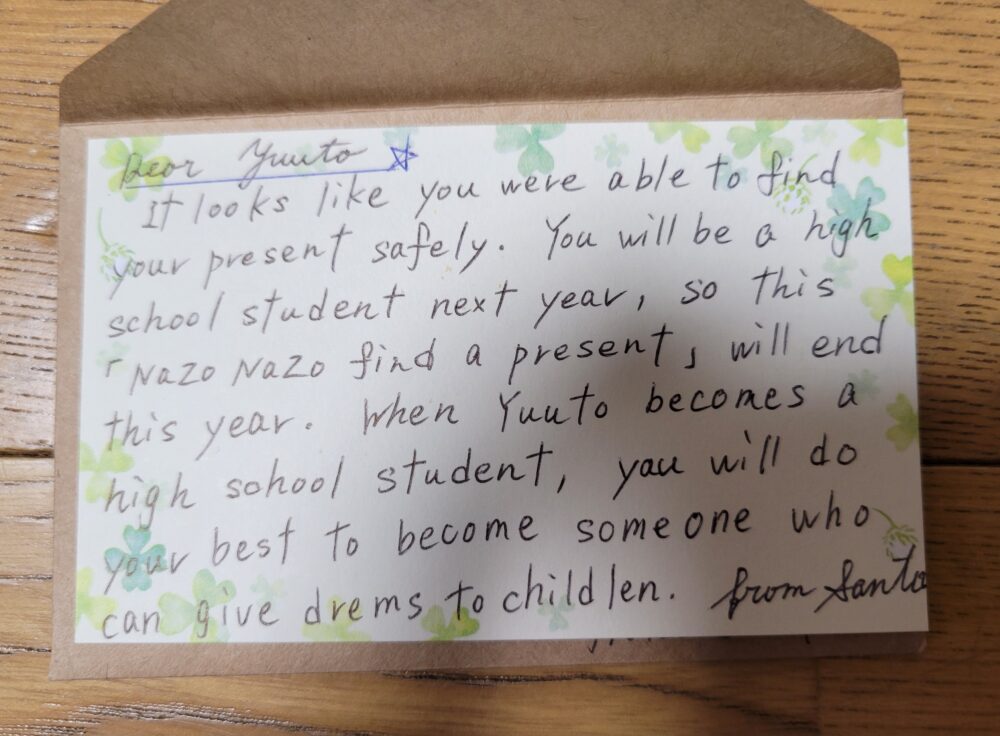 Dear Yuuto ☆
It looks like you were able to find
your present safely. You will be a high
school student next year, so this
「NaZo NaZo find a present」 will end
this year. When Yuuto becomes a
high sohool student, you will do
your best to become someone who
can give drems to childlen. from Santa